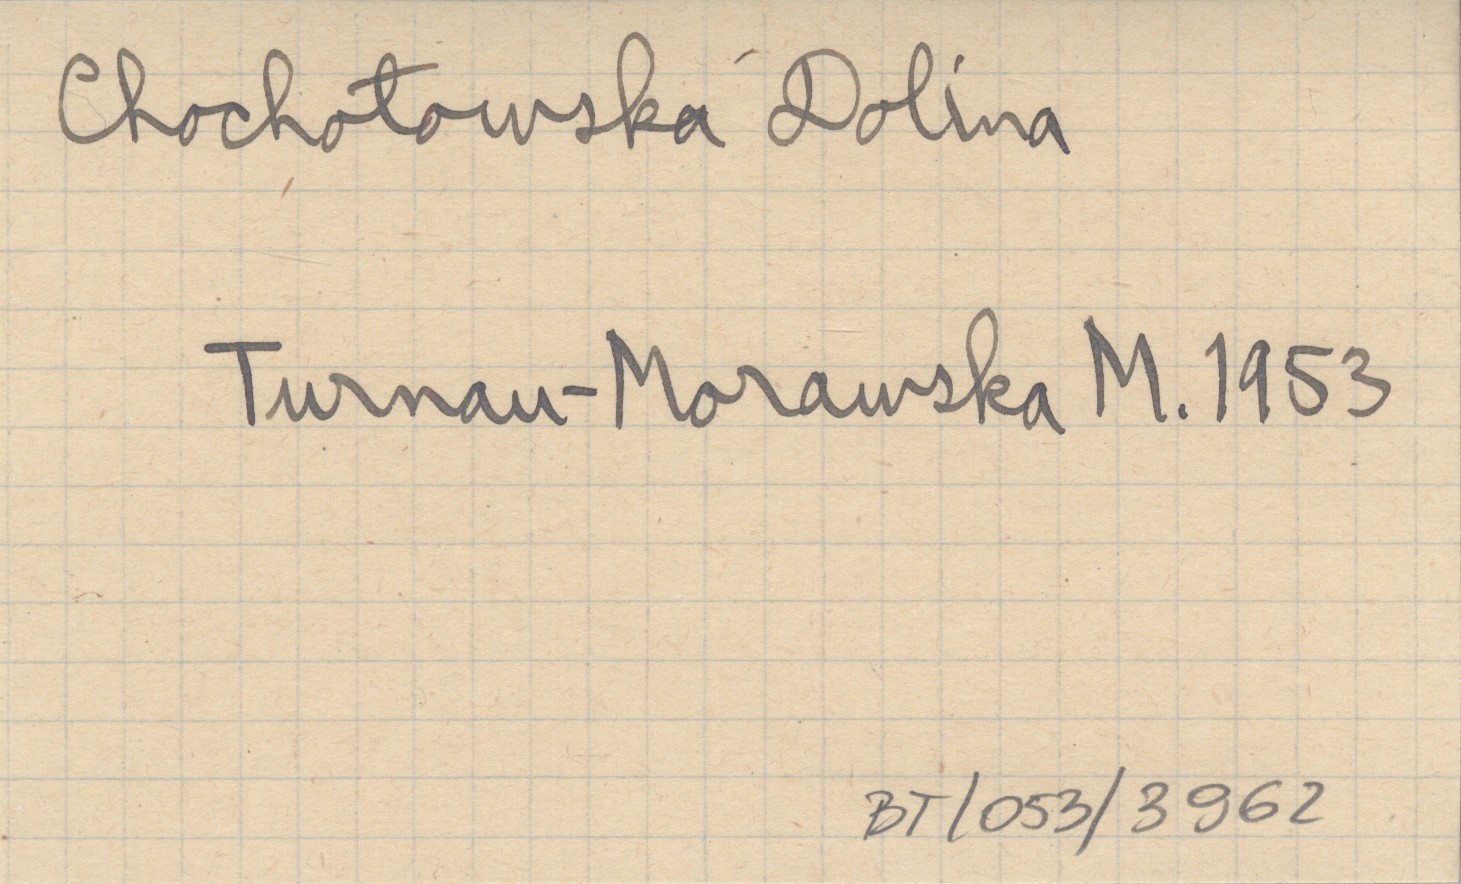 Chochołowska Dolina
Turnau-Morawska M. 1953
BT/053/3962